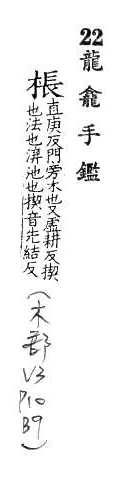 22龍龕手鑑
棖
直庚反門旁木也又虛耕反楔
也法也池也楔音先結反
(木部
V3
P10
B9)